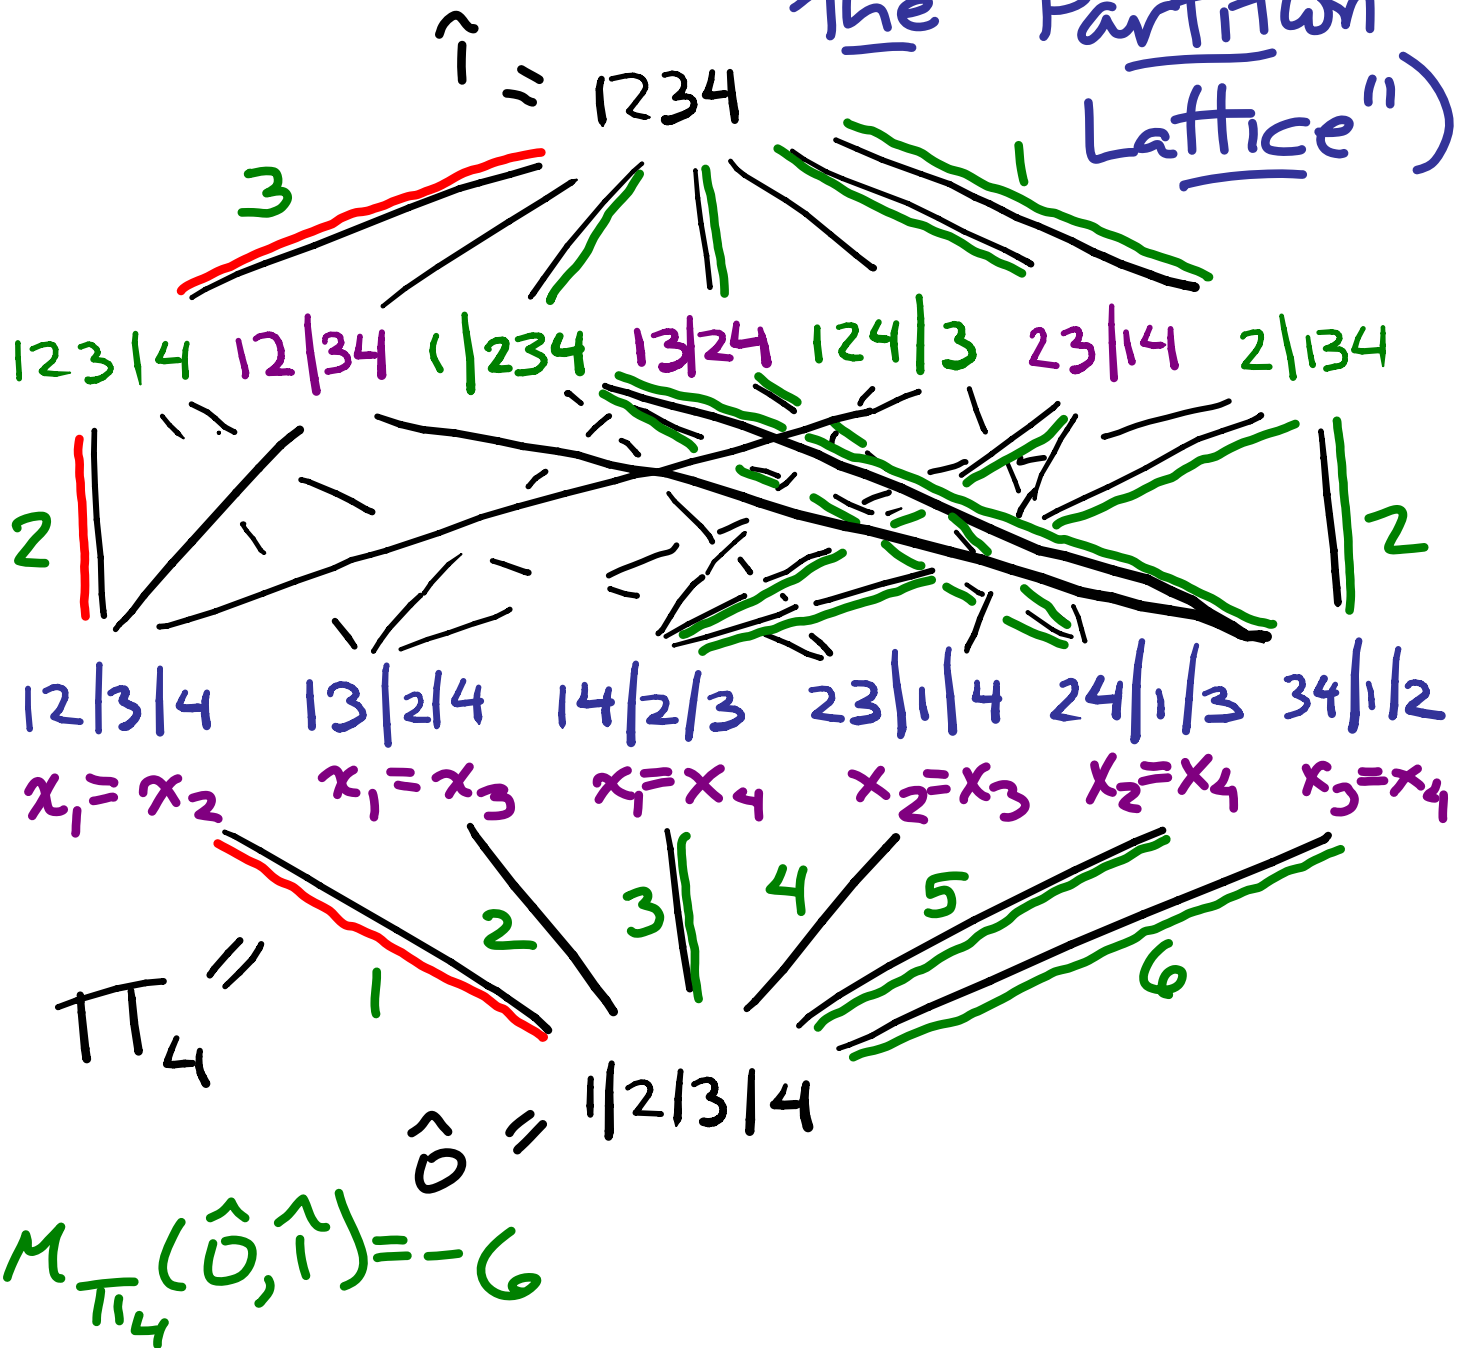 The Partition
Lattice")
1̂ = 1234
3 1
123|4 12|34 1|234 13|24 124|3 23|14 2|134
2 2
12|3|4 13|2|4 14|2|3 23|1|4 24|1|3 34|1|2
x₁=x₂ x₁=x₃ x₁=x₄ x₂=x₃ x₂=x₄ x₃=x₄
1 2 3 4 5 6
Π₄ =
0̂ = 1|2|3|4
μ_Π₄(0̂,1̂)=-6